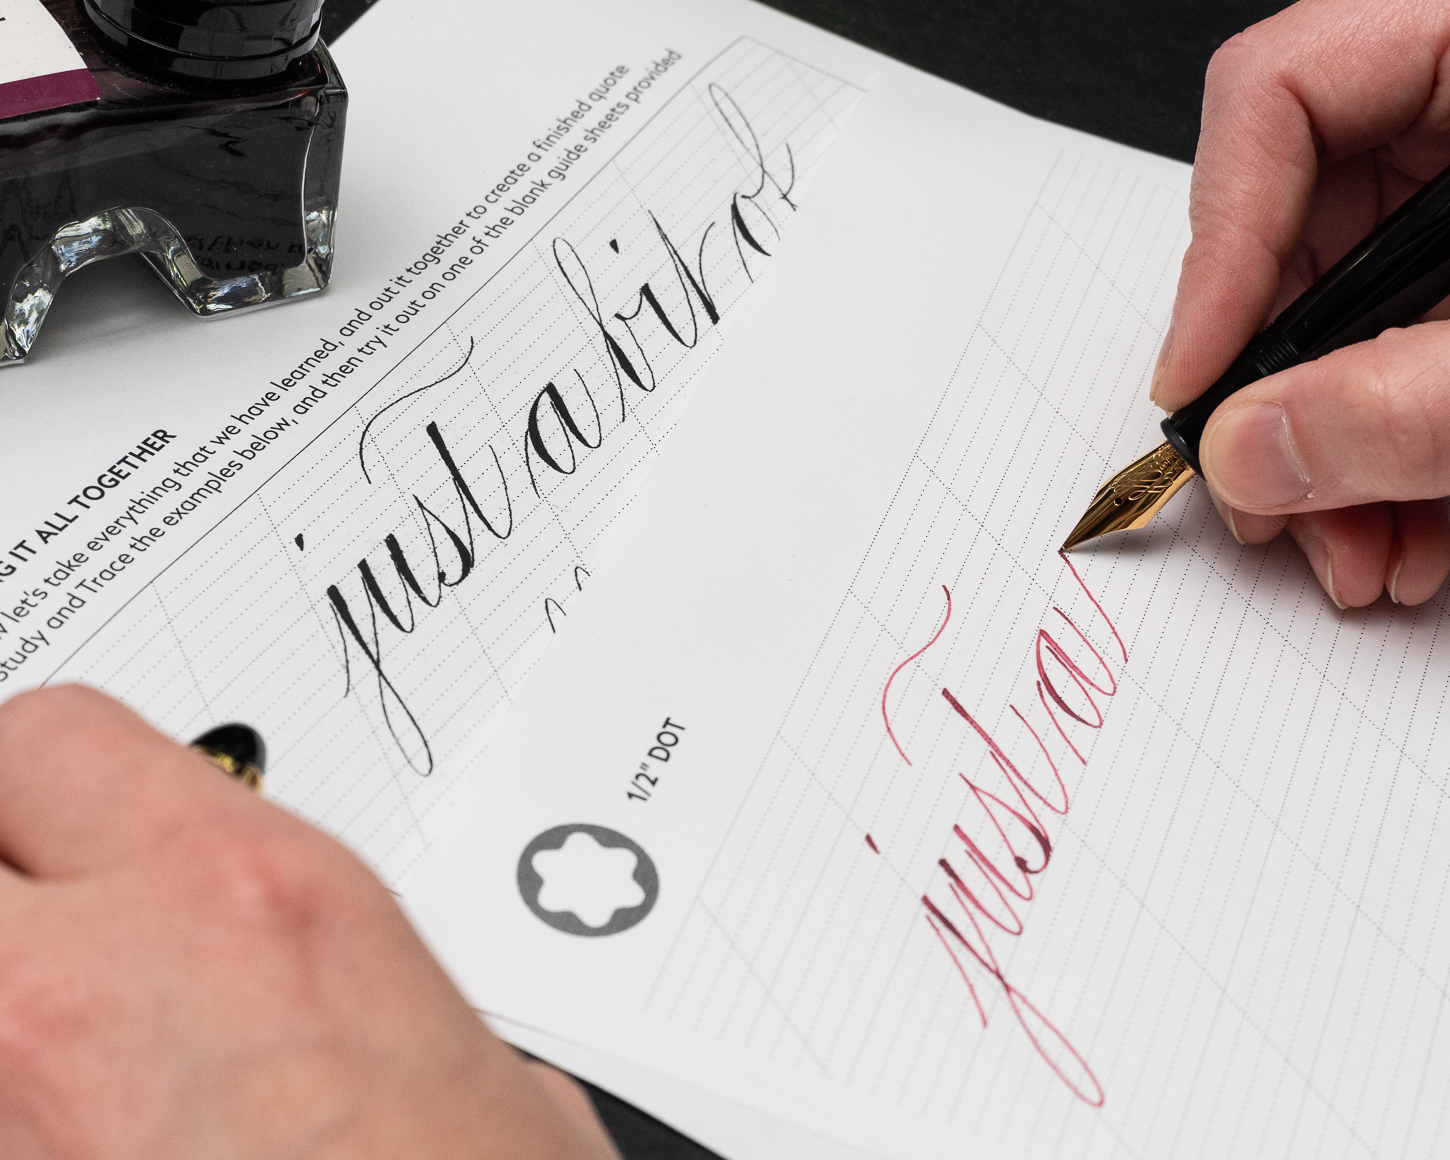 G IT ALL TOGETHER
let's take everything that we have learned, and out it together to create a finished quote
study and Trace the examples below, and then try it out on one of the blank guide sheets provided
just a bit of
1/2" DOT
just a